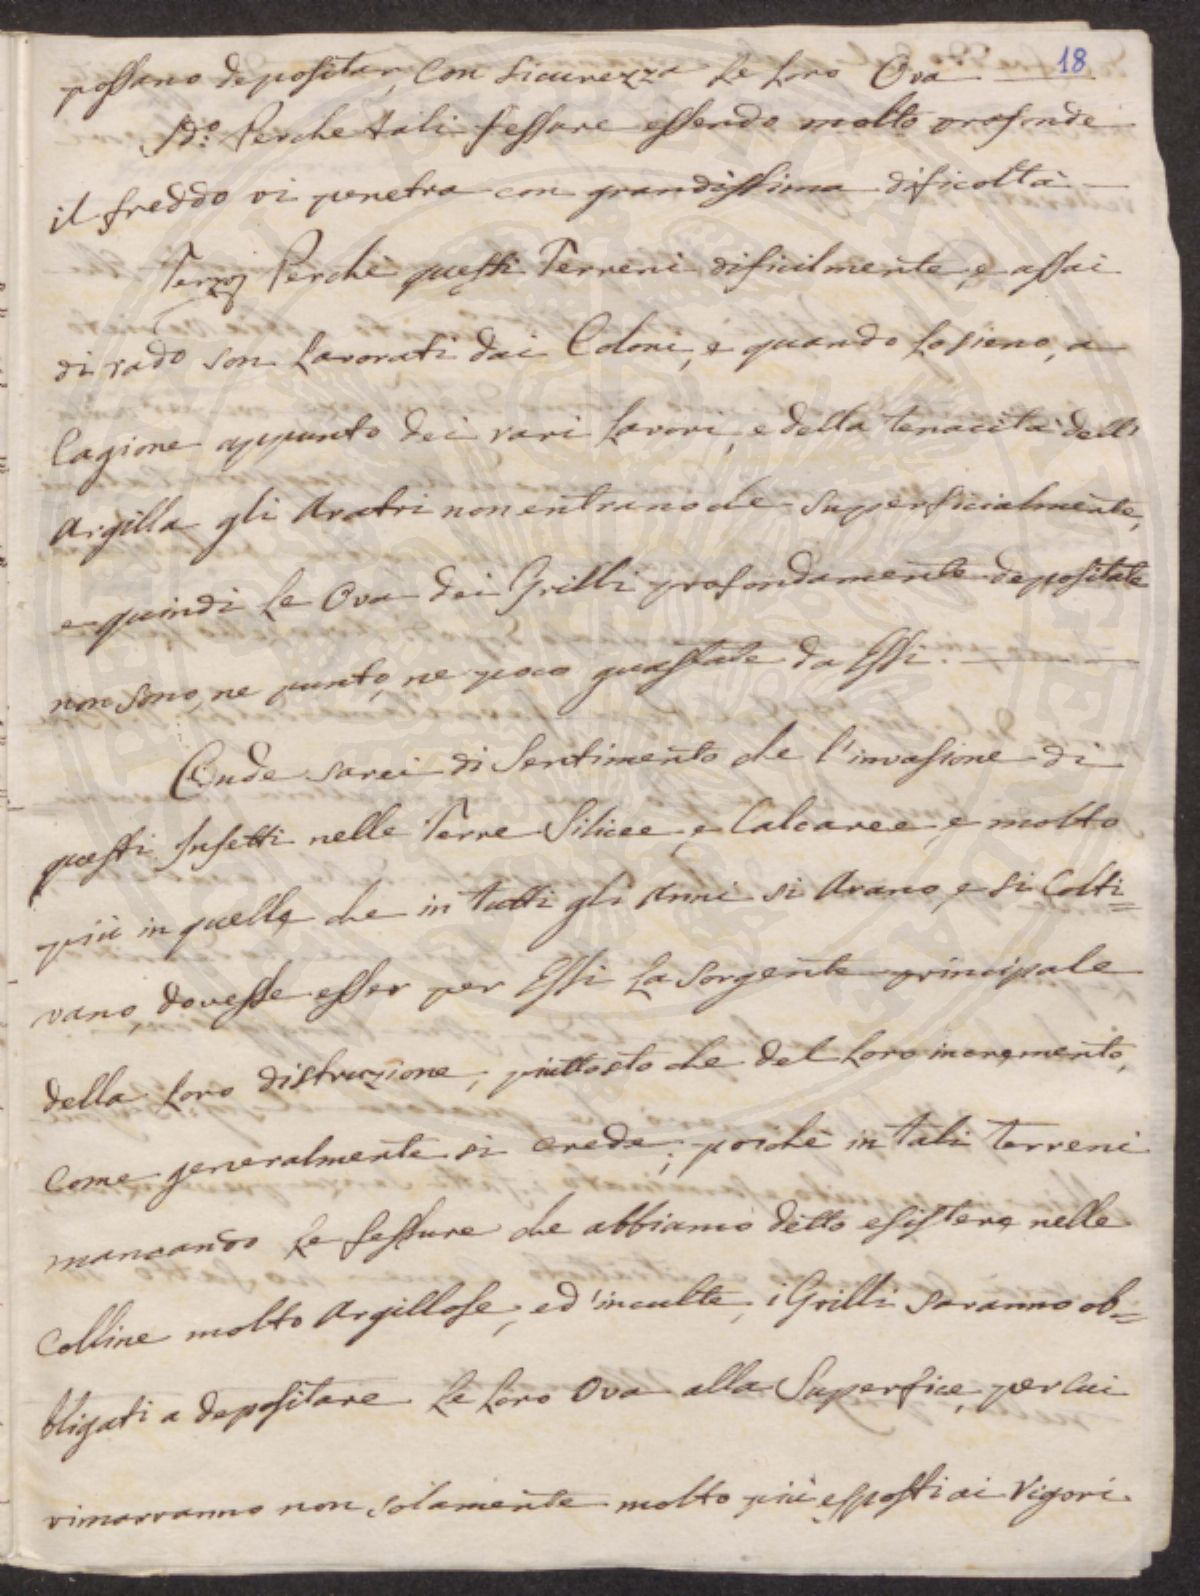 18
possano depositar, con sicurezza le loro Ova
Sdo. Perche tali fessure essendo molto profonde
il freddo vi penetra con grandissima dificoltà
Terzo Perchè questi Terreni dificilmente, e assai
di rado son lavorati dai Coloni, e quando lo sieno, a
Cagione appunto dei rari lavori, e della tenacità dell'
Argilla gli Aratri non entrano che superficialmente,
e quindi le Ova dei Grilli profondamente depositate
non sono, ne punto, ne poco guastate da Essi.
Onde sarei di sentimento che l'invasione di
questi Insetti nelle Terre Silicee, e Calcaree, e molto
più in quelle che in tutti gli Anni si Arano, e si Colti=
vano, dovesse esser per Essi la sorgente principale
della loro distruzione, piuttosto che del loro incremento,
come generalmente si crede; poichè in tali terreni
mancando le fessure che abbiamo detto esistere nelle
Colline molto Argillose, ed'inculte, i Grilli saranno ob=
bligati a depositare le loro Ova alla Superfice, per cui
rimarranno non solamente molto più esposti ai Rigori